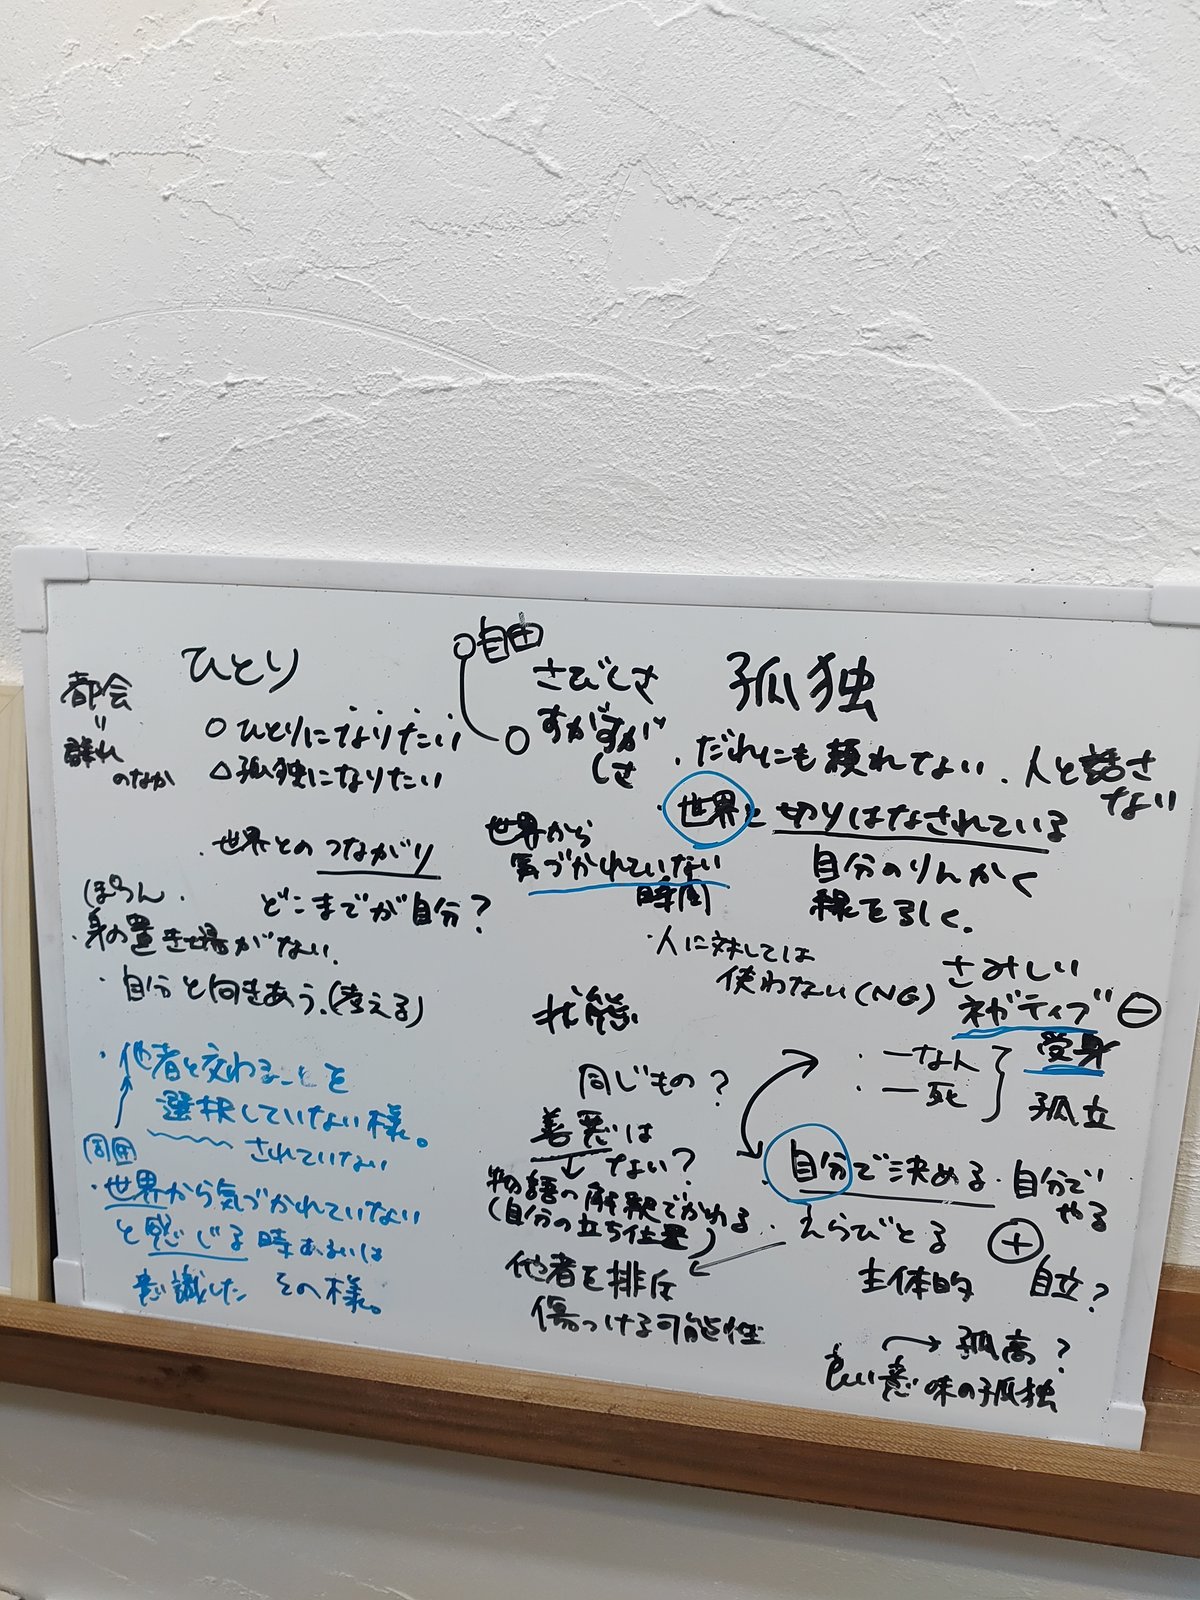 ひとり
都会
〃
群れ
のなか
○ひとりになりたい
△孤独になりたい
・世界とのつながり
どこまでが自分?
ぽつん・
・身の置き場がない。
・自分と向きあう。(考える)
・他者と交わることを
選択していない様。
されていない
周囲
・世界から気づかれていない
と感じる時あるいは
意識した その様。
○自由
さびしさ
○すがすが
しさ
世界から
気づかれていない
時間
状態
同じもの?
善悪は
ない?
物語の解釈でかわる
(自分の立ち位置)
他者を排斥
傷つける可能性
孤独
・だれにも頼れない ・人と話さ
ない
・世界と切りはなされている
自分のりんかく
線を引く。
・人に対しては
使わない(NG)
さみしい
ネガティブ ⊖
受身
・一なん
・一死
孤立
自分で決める・自分で
やる
・えらびとる
⊕
主体的
自立?
→孤高?
良い意味の孤独